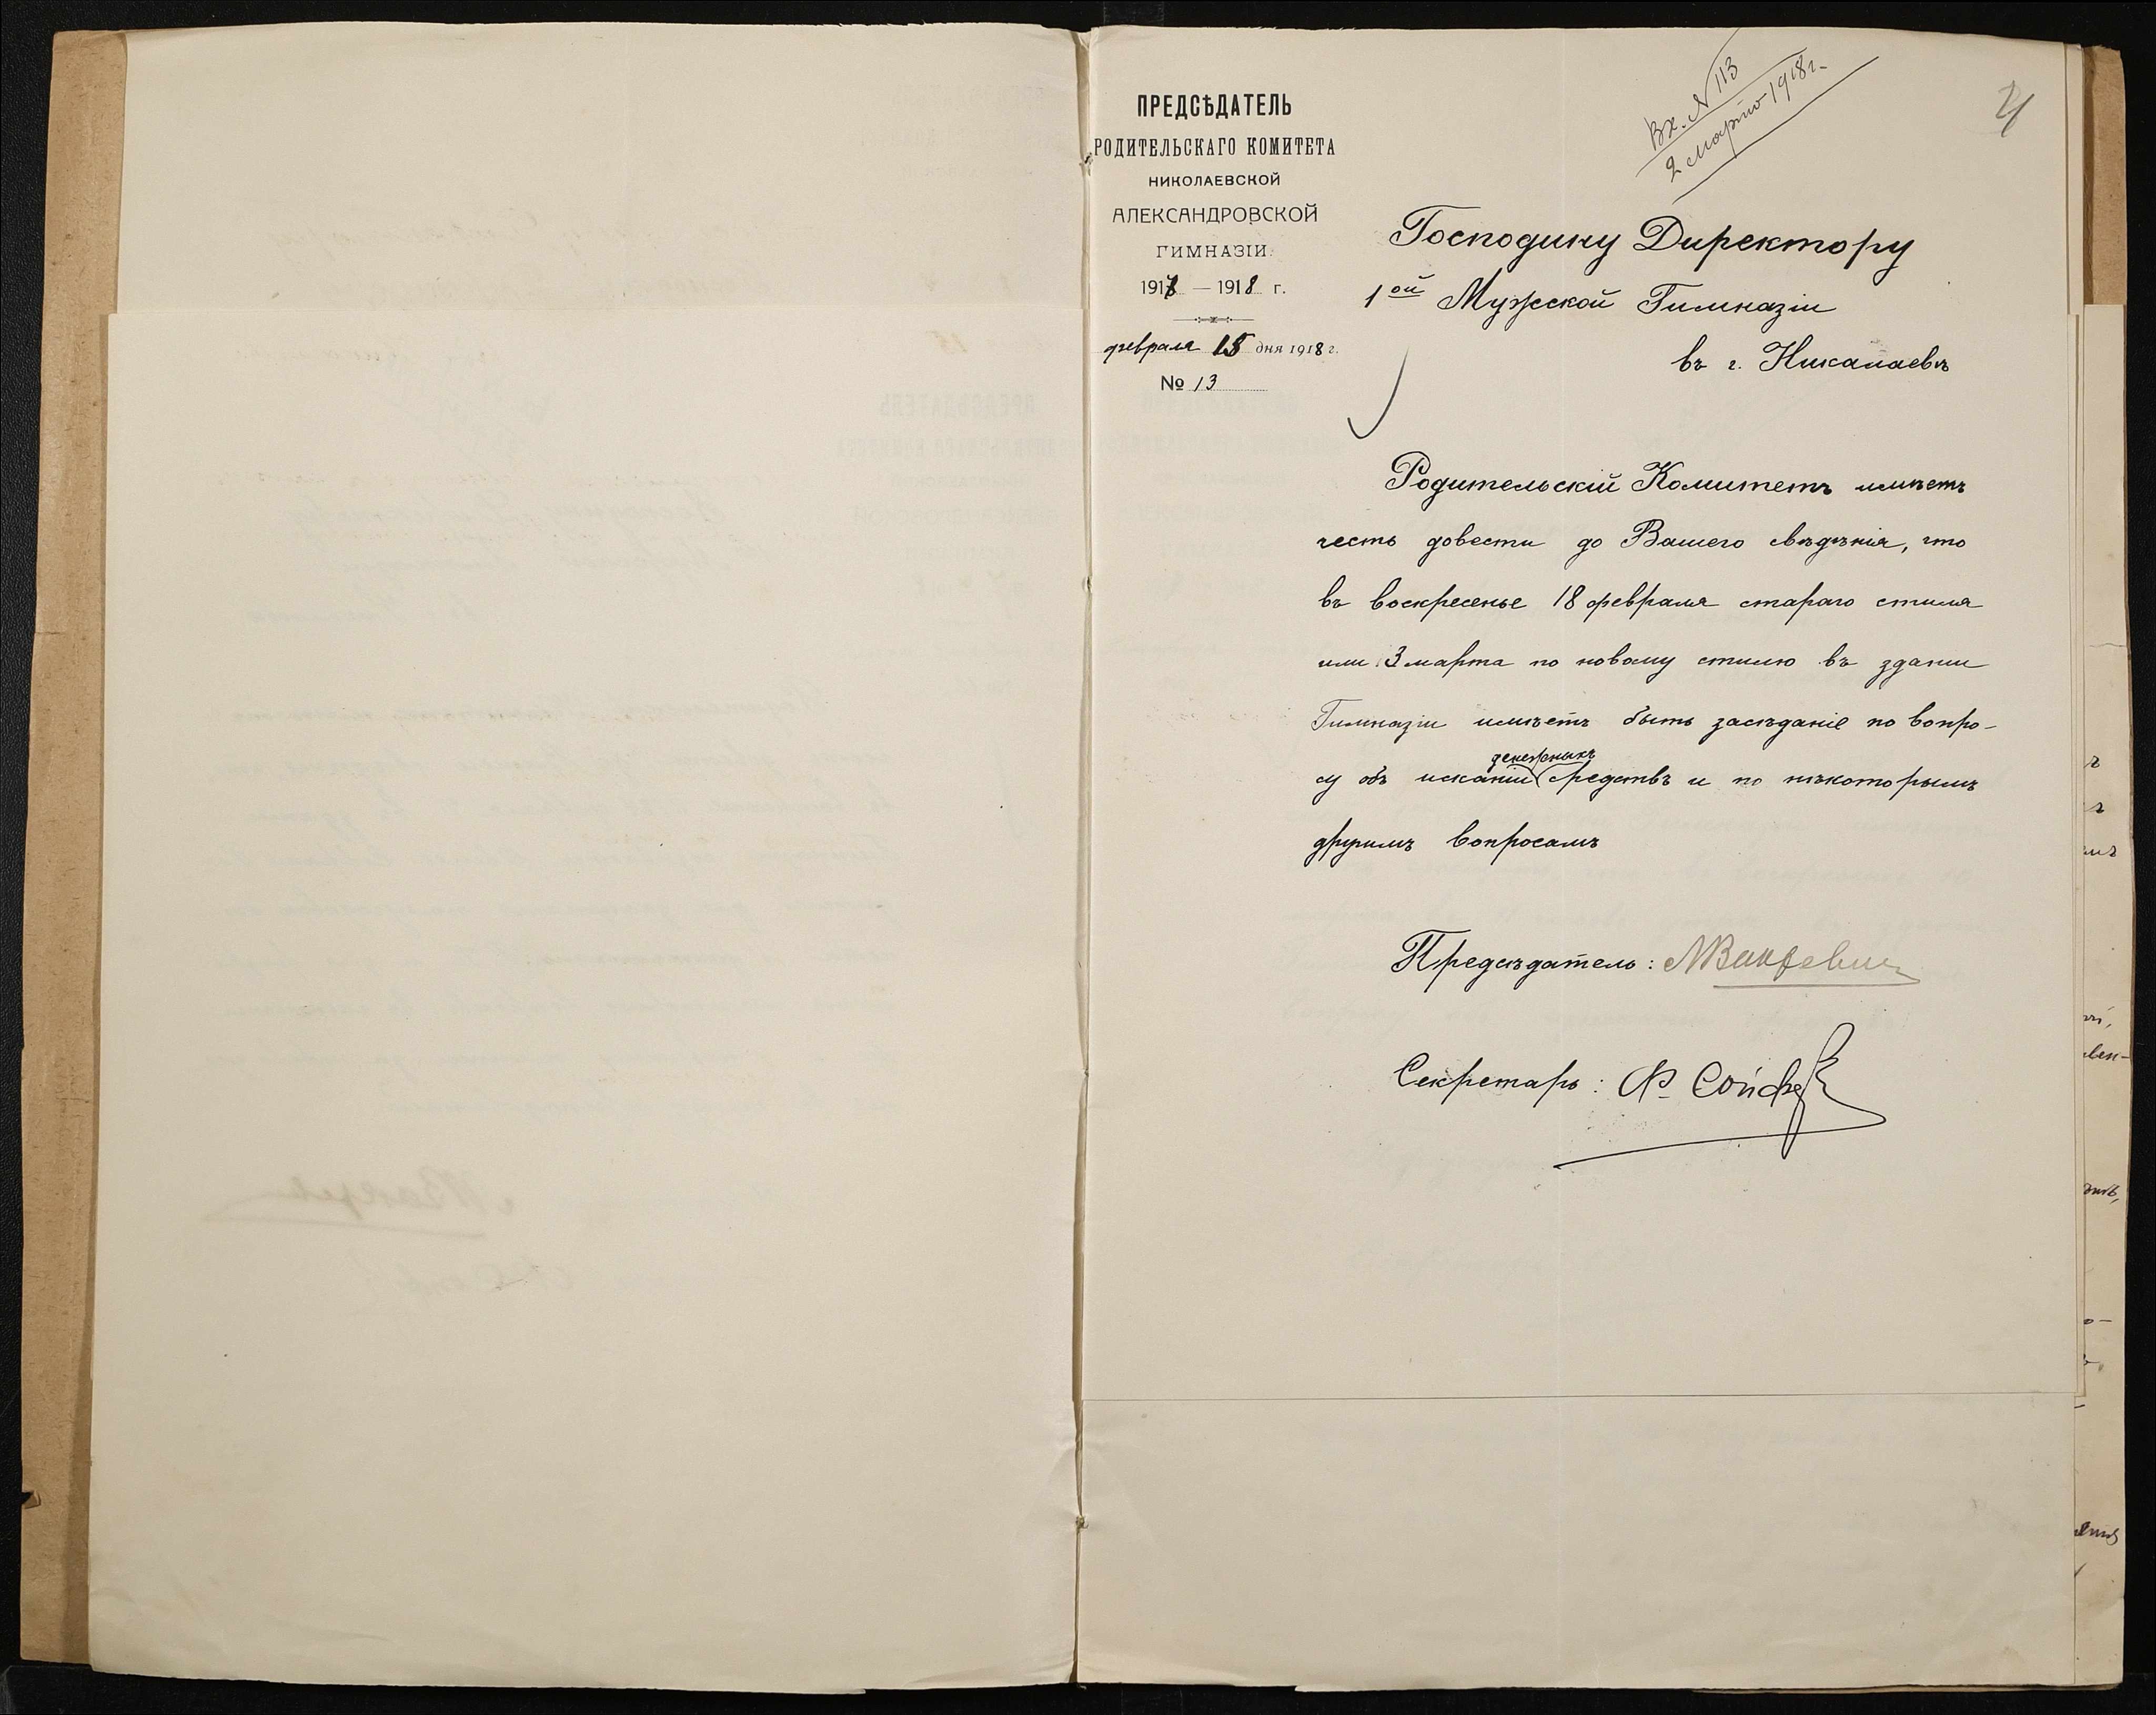 Вх. № 113
2 марта 1918 г.
4
ПРЕДСѢДАТЕЛЬ
РОДИТЕЛЬСКАГО КОМИТЕТА
НИКОЛАЕВСКОЙ
АЛЕКСАНДРОВСКОЙ
ГИМНАЗІИ.
1917 — 1918 г.
февраля 15 дня 1918 г.
№ 13
Господину Директору
1ой Мужской Гимназіи
въ г. Николаевѣ
Родительскій Комитетъ имѣетъ
честь довести до Вашего свѣдѣнія, что
въ воскресенье 18 февраля стараго стиля
или 3 марта по новому стилю въ здании
Гимназіи имѣетъ быть засѣданіе по вопро-
денежныхъ
су объ исканіи средствъ и по нѣкоторымъ
другимъ вопросамъ
Предсѣдатель:
Секретарь: Ф. Сойфер